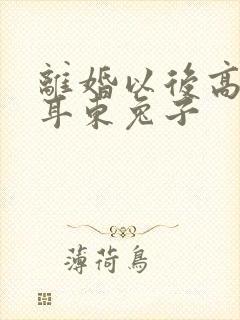 離婚以後高
耳東兔子
薄荷鳥